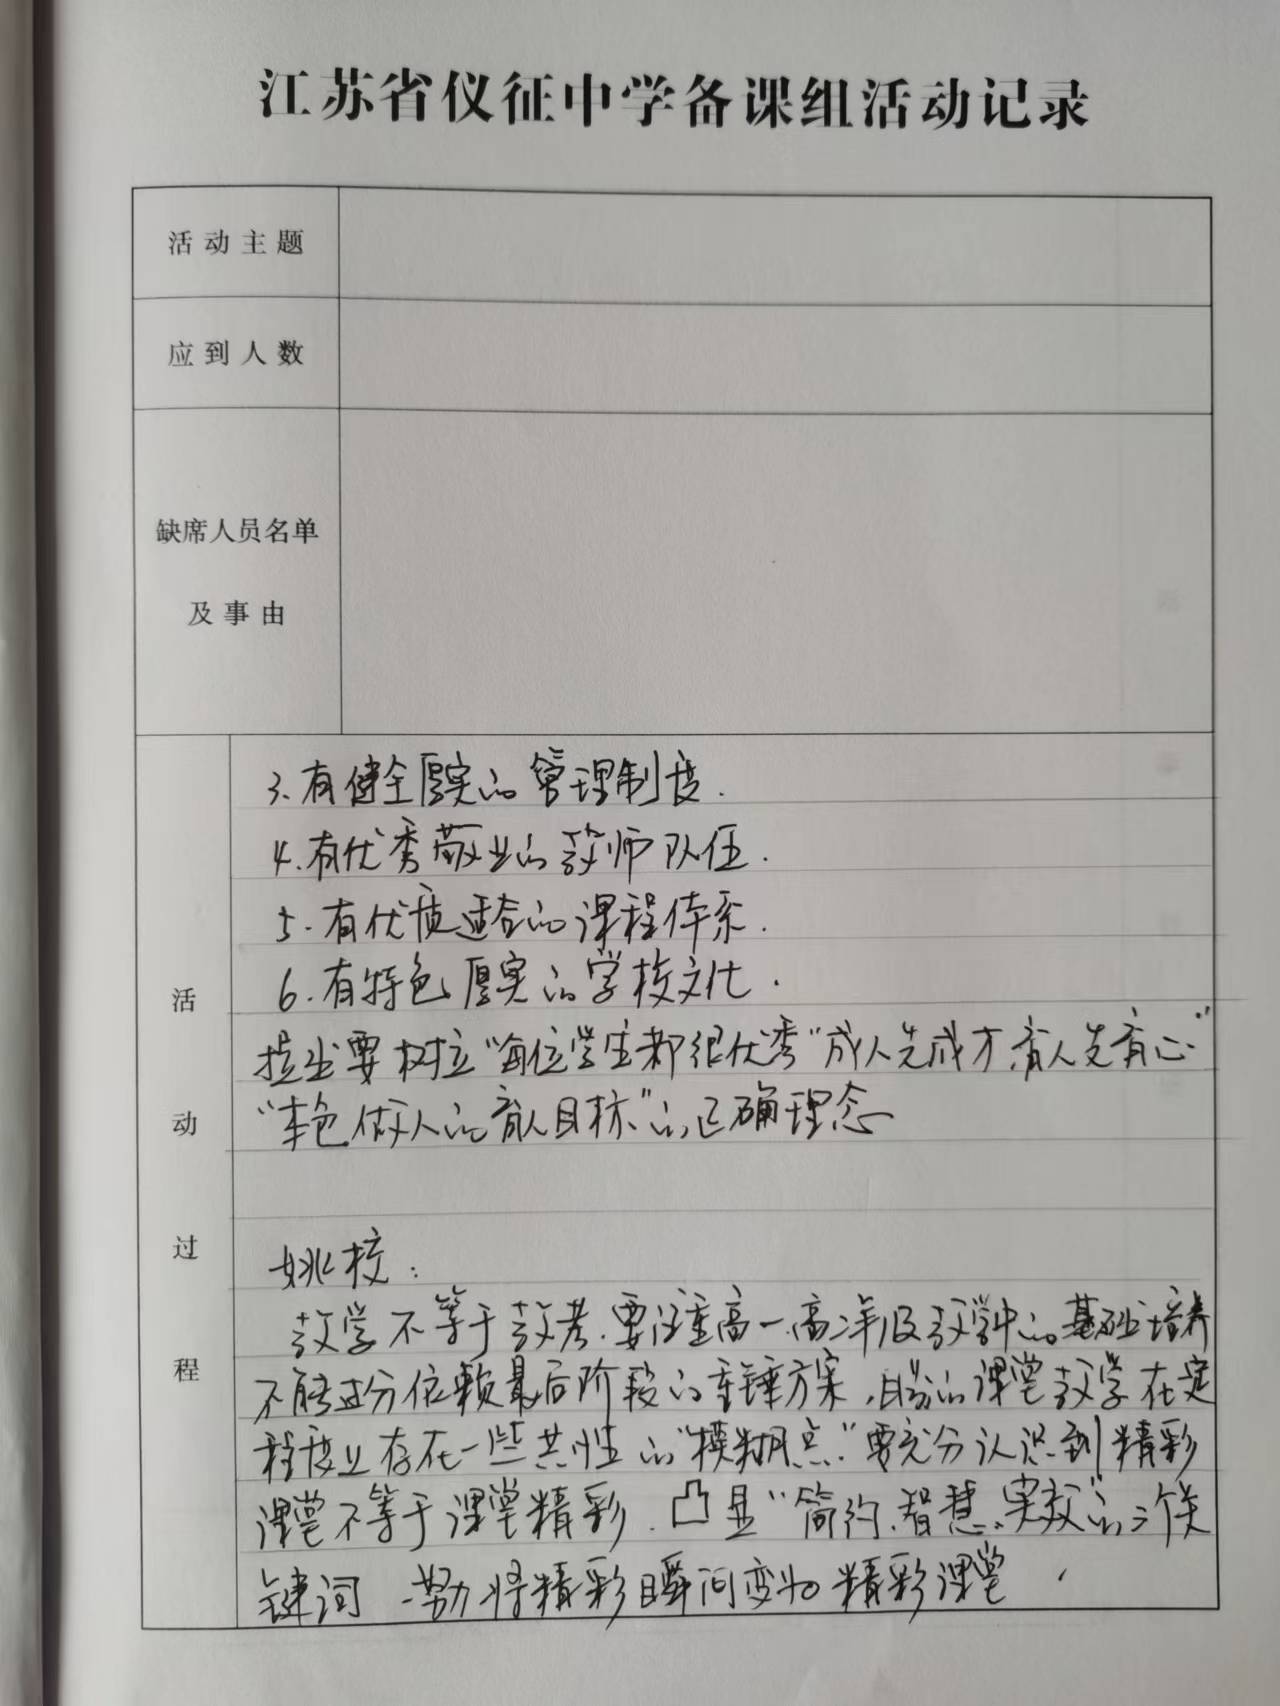 江苏省仪征中学备课组活动记录
活动主题
应到人数
缺席人员名单
及事由
活动过程
3.有健全厚实的管理制度.
4.有优秀敬业的教师队伍.
5.有优质适合的课程体系.
6.有特色厚实的学校文化.
提出要树立“每位学生都很优秀”成人先成才,育人先育心.”
“本色做人的育人目标”的正确理念
姚校:
教学不等于教考.要注重高一.高二年级教学中的基础培养
不能过分依赖最后阶段的重锤方案,的课堂教学在定
程度上存在一些共性的“模糊点”要充分认识到精彩
课堂不等于课堂精彩.凸显“简约.智慧.实效”的三个关
键词.努力将精彩瞬间变为精彩课堂